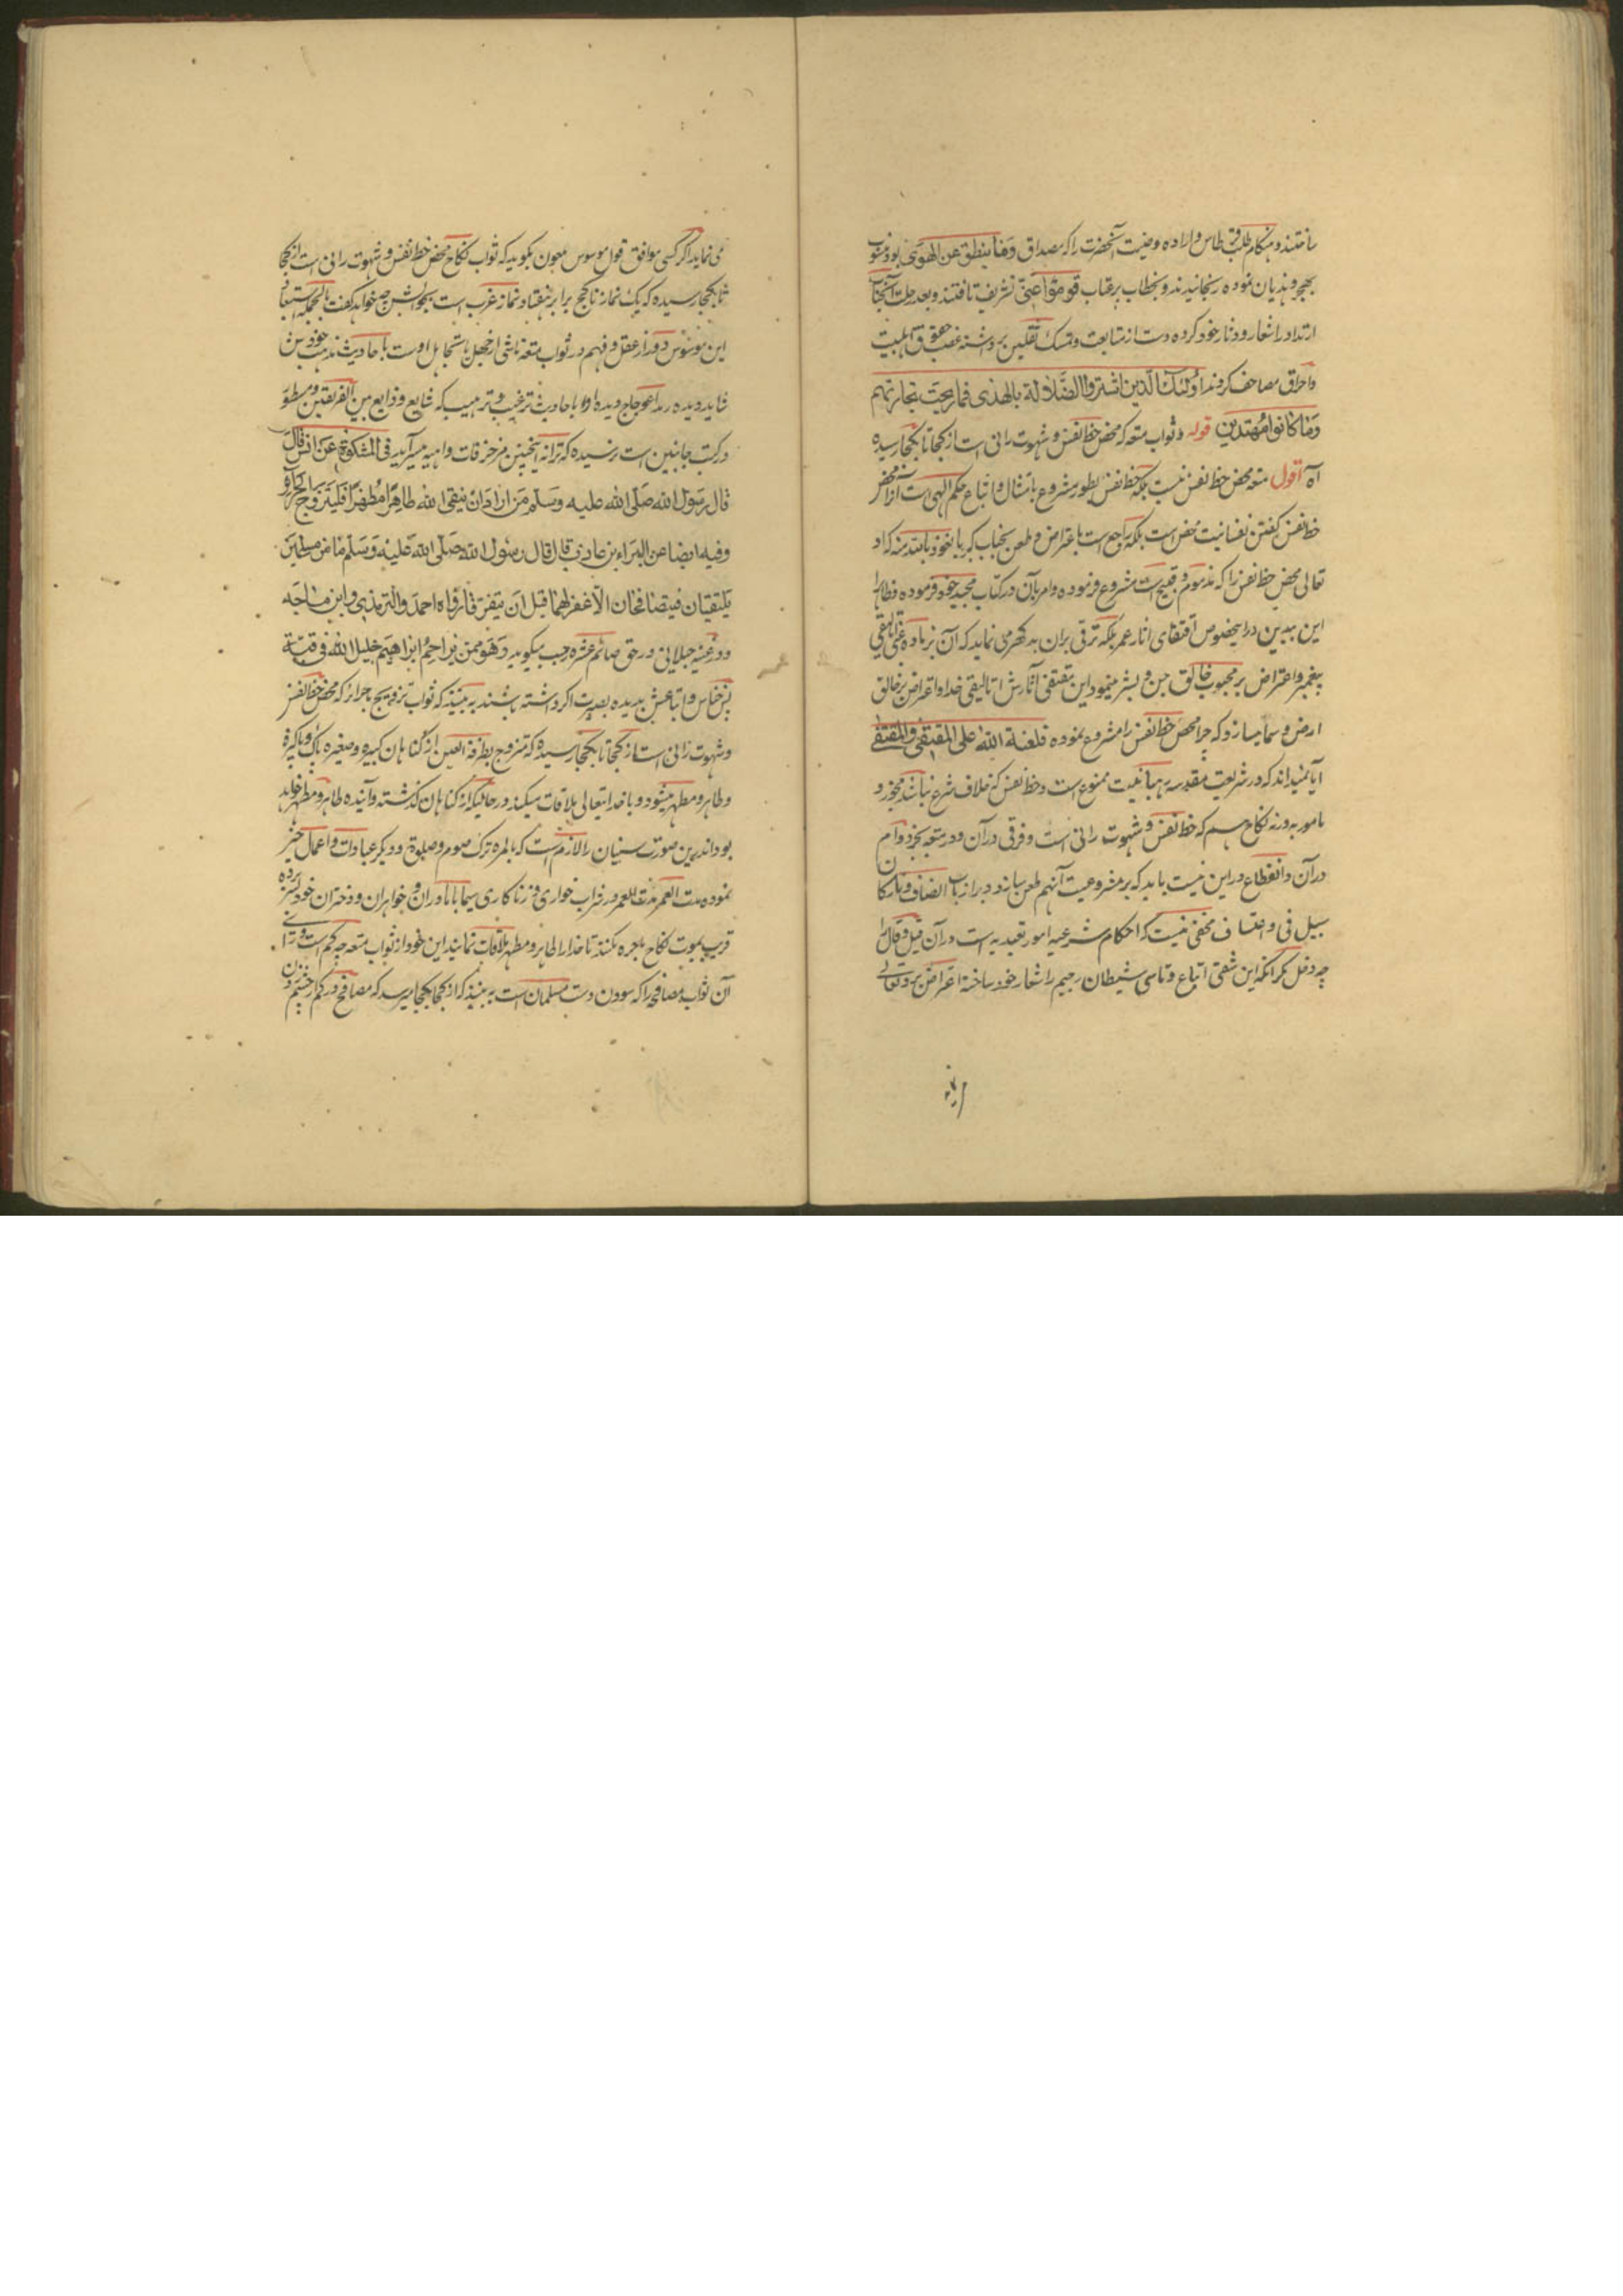 ساختند و هنگام طلب قرطاس و اراده وصیت آنحضرت را که مصداق وما ینطق عن الهوی بود منسوب
بهجر و هذیان نموده رنجانیدند و بخطاب پر عتاب قوموا عنی تشریف یافتند و بعد رحلت آنجناب
ارتداد را شعار و دثار خود کرده دست از متابعت و تمسک ثقلین برداشته غصب حقوق اهلبیت
و احراق مصاحف کردند اولئک الذین اشتروا الضلالة بالهدی فما ربحت تجارتهم
وما کانوا مهتدین قوله و ثواب متعه که محض حظ نفس و شهوت رانی است از کجا تا بکجا رسیده
آه اقول متعه محض حظ نفس نیست بلکه حظ نفس بطور مشروع بامتثال و اتباع حکم الهی است آنرا محض
حظ نفس گفتن نفسانیت محض است بلکه راجع است باعتراض و طعن بجناب کبریا نعوذ بالله منه که او
تعالی محض حظ نفس را که مذموم و قبیح است مشروع فرموده و امر بآن در کتاب مجید خود فرموده و ظاهرا
این بیدین در اینخصوص اقتفای آثار عمر بلکه ترقی بران بد گهر می نماید که آن
پیغمبر و اعتراض بر محبوب خالق جن و بشر مینمود این مقتفی آثارش اتالیقی خدا و اعتراض بر خالق
ارض و سما میسازد که چرا محض حظ نفس را مشروع نموده فلعنة الله علی المقتفی والمقتفی
آیا نمیداند که در شریعت مقدسه رهبانیت ممنوع است و حظ نفس که خلاف شرع نباشد مجوز و
مامور به ورنه نکاح هم که حظ نفس و شهوت رانی است و فرقی در آن و در متعه بجز دوام
در آن و انقطاع در این نیست باید که بر مشروعیت آنهم طعن سازد و بر ارباب انصاف و تارکان
سبیل غی و اعتساف مخفی نیست که احکام شرعیه امور تعبدیه است در آن قیل و قال را
چه دخل مگر آنکه این شقی اتباع و تاسی شیطان رجیم را شعار خود ساخته اعتراض برو تعالی
می نماید اگر کسی موافق قول موسوس بگوید که ثواب نکاح محض حظ نفس و شهوت رانی است از کجا
تا بکجا رسیده که یک نماز ناکح برابر هفتاد نماز عزب است بجوابش چه خواهد گفت بالجمله استبعاد
این موسوس دور از عقل و فهم در ثواب متعه ناشی از جهل یا تجاهل اوست با حادیث مذهب خود پس
شاید دیده رمد اعوجاج دیده او با حادیث ترغیب و ترهیب که شایع و ذایع بین الفریقین و مسطور
در کتب جانبین است نرسیده که ترانه اینچنین مزخرفات واهیه میسراید فی المشکوة عن انس قال
قال رسول الله صلی الله علیه وسلم من اراد ان یلقی الله طاهرا مطهرا فلیتزوج الحرائر
وفیه ایضا عن البراء بن عازب قال قال رسول الله صلی الله علیه وسلم ما من مسلمین
یلتقیان فیتصافحان الا غفر لهما قبل ان یتفرقا رواه احمد والترمذی وابن ماجه
و در غنیه جیلانی در حق صائم عشره رجب میگوید وهو ممن یزاحم ابراهیم خلیل الله فی قبته
پس خناس و اتباعش بدیده بصیرت اگر داشته باشند به بینند که ثواب تزویج حرائر که محض حظ نفس
و شهوت رانی است از کجا تا بکجا رسیده که متزوج بطرفة العین از گناهان کبیره و صغیره پاک و پاکیزه
و طاهر و مطهر میشود و با خدایتعالی ملاقات میکند در حالیکه از گناهان گذشته و آینده طاهر و مطهر خواهد
بود اندرین صورت سنیان را لازم است که بالمره ترک صوم و صلوة و دیگر عبادات و اعمال خیر
نموده مدت العمر در شراب خواری و زناکاری سیما با مادران و خواهران و دختران خود بسر برده
قریب بموت نکاح بحره کنند تا خدا را طاهر و مطهر ملاقات نمایند این خود از ثواب متعه چه کم است و رای
آن ثواب مصافحه را که سودن دست مسلمان است به بینند که از کجا بکجا میرسد که مصافح در کم از چشم زدن